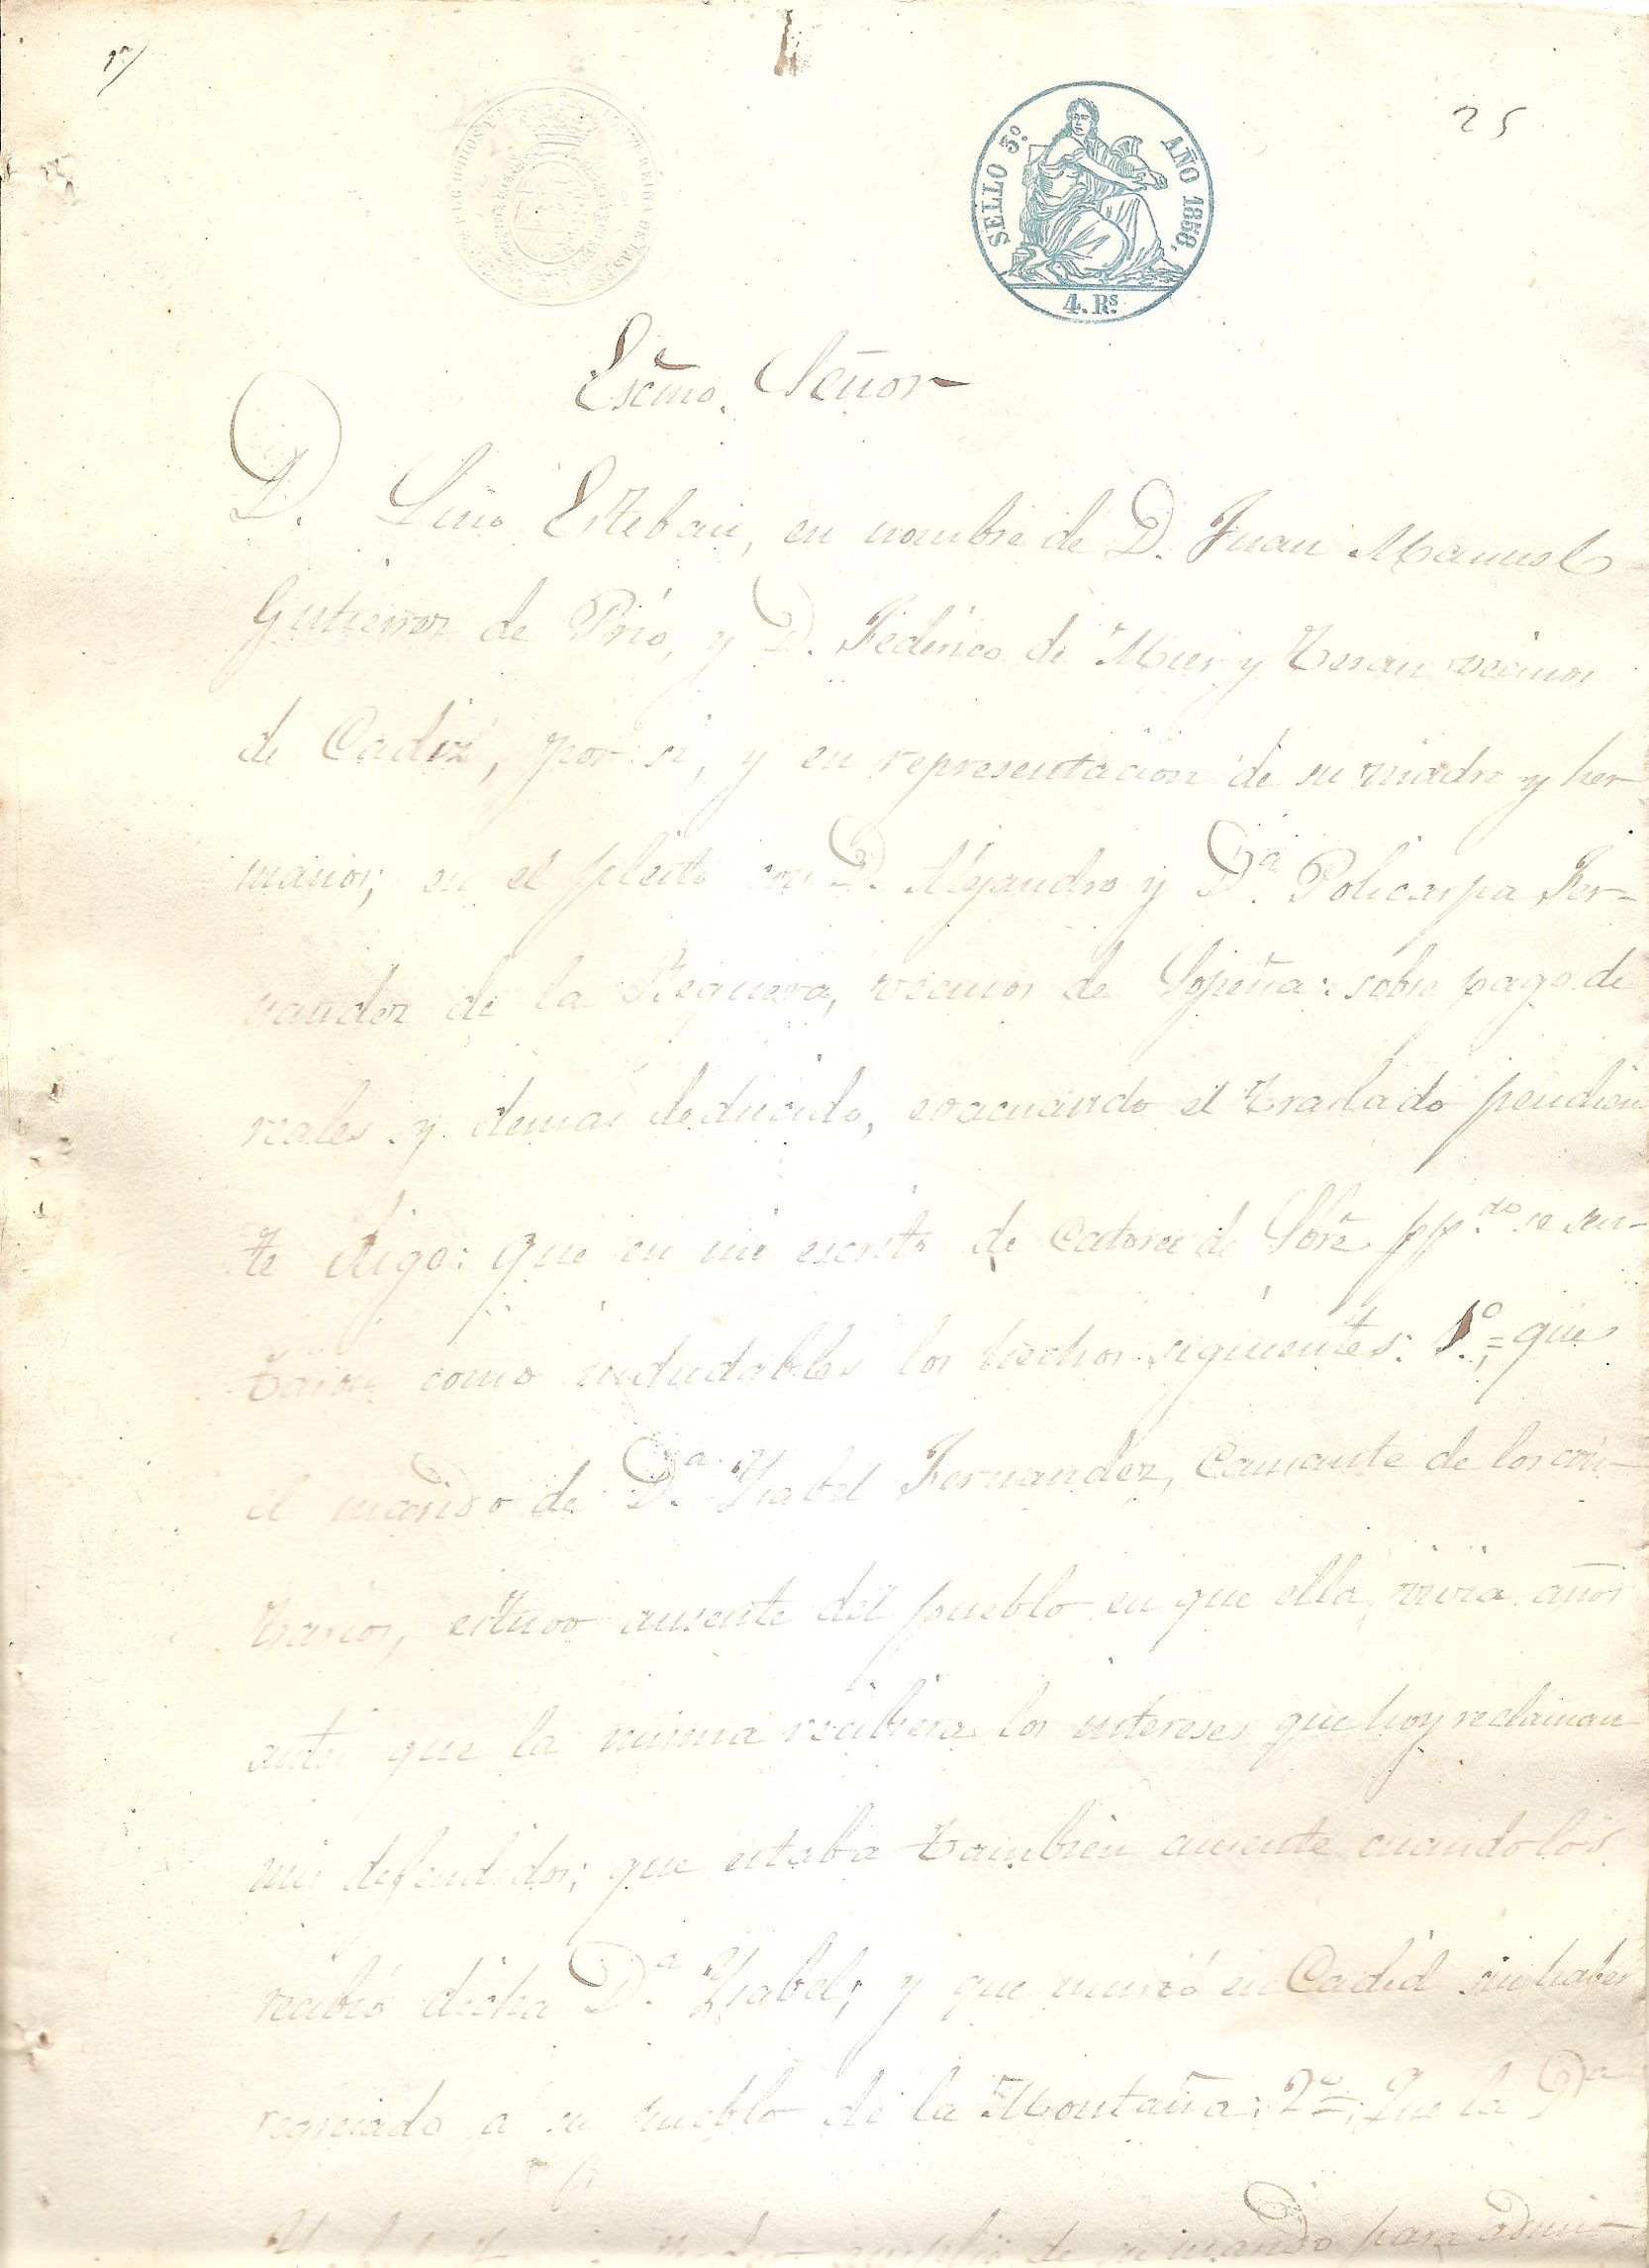 25
SELLO 3º AÑO 1858,
4. Rs.
Escmo. Señor
D. Lino Esteban, en nombre de D. Juan Manuel
Gutierrez de Prio, y D. Federico de Mier y Teran vecinos
de Cadiz, por si, y en representacion de su madre y her-
manos; en el pleito con D. Alejandro y Dª. Policarpa Fer-
nandez de la Reguera, vecinos de Sopeña: sobre pago de
reales y demas deducido, evacuando el traslado pendien
te digo: que en mi escrito de Catorce de Sbre. pp.do se sen-
taron como indudables los hechos siguientes: 1.º= que
el marido de Dª. Ysabel Fernandez, Causante de los con-
trarios, estuvo ausente del pueblo en que ella vivia años
antes que la misma recibiera los intereses que hoy reclaman
mis defendidos; que estaba tambien ausente cuando los
recibió dicha Dª. Ysabel; y que murió en Cadid sin haber
regresado a su pueblo de la Montaña: 2º=; Que la Dª
de su marido para admi-